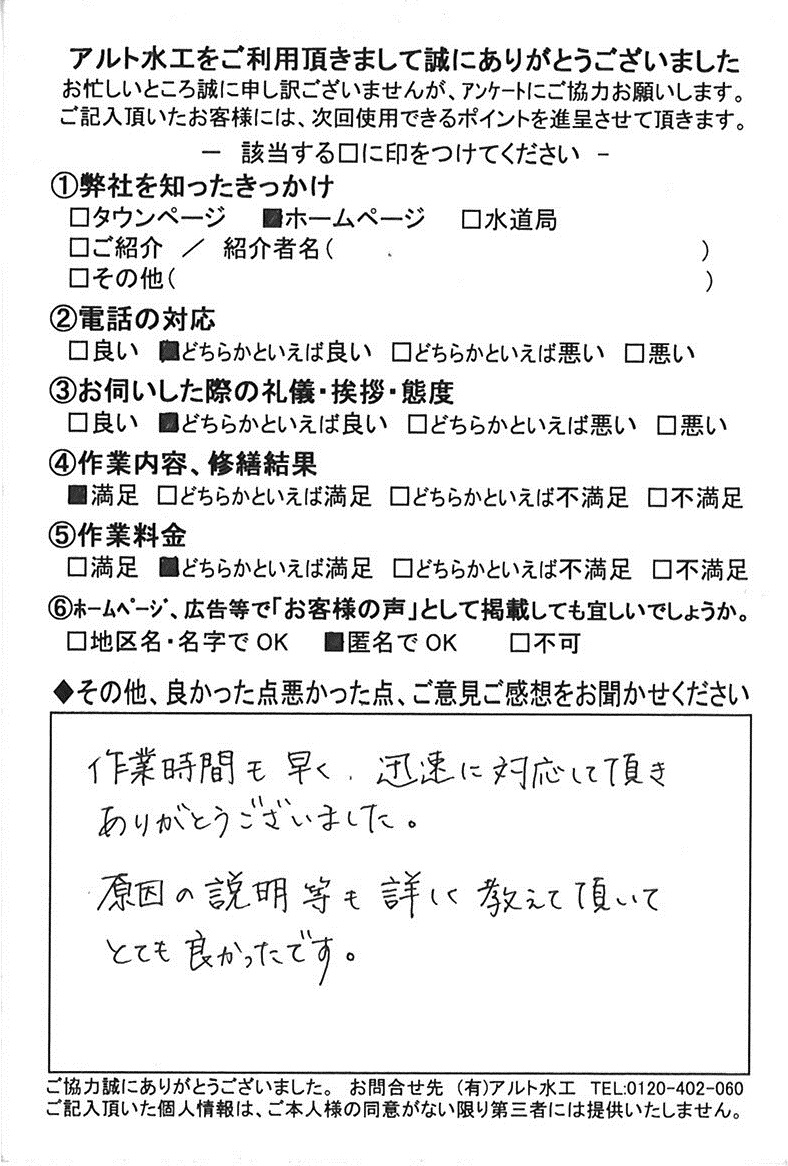 アルト水工をご利用頂きまして誠にありがとうございました
お忙しいところ誠に申し訳ございませんが、アンケートにご協力お願いします。
ご記入頂いたお客様には、次回使用できるポイントを進呈させて頂きます。
－ 該当する□に印をつけてください －
①弊社を知ったきっかけ
□タウンページ ■ホームページ □水道局
□ご紹介 ／ 紹介者名( )
□その他( )
②電話の対応
□良い ■どちらかといえば良い □どちらかといえば悪い □悪い
③お伺いした際の礼儀・挨拶・態度
□良い ■どちらかといえば良い □どちらかといえば悪い □悪い
④作業内容、修繕結果
■満足 □どちらかといえば満足 □どちらかといえば不満足 □不満足
⑤作業料金
□満足 ■どちらかといえば満足 □どちらかといえば不満足 □不満足
⑥ホームページ、広告等で「お客様の声」として掲載しても宜しいでしょうか。
□地区名・名字でOK ■匿名でOK □不可
◆その他、良かった点悪かった点、ご意見ご感想をお聞かせください
作業時間も早く、迅速に対応して頂き
ありがとうございました。
原因の説明等も詳しく教えて頂いて
とても良かったです。
ご協力誠にありがとうございました。 お問合せ先 (有)アルト水工 TEL:0120-402-060
ご記入頂いた個人情報は、ご本人様の同意がない限り第三者には提供いたしません。